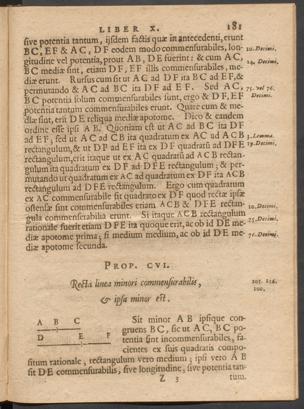 LIBER X. 181
sive potentia tantum, ijsdem factis quæ in antecedenti, erunt
BC, EF & AC, DF eodem modo commensurabiles, lon- 10. Decimi.
gitudine vel potentia, prout AB, DE fuerint: & cum AC,
BC mediæ sint, etiam DF, EF illis commensurabiles, me- 24. Decimi.
diæ erunt. Rursus cum sit ut AC ad DF ita BC ad EF, &
permutando & AC ad BC ita DF ad EF. Sed AC,
BC potentia solum commensurabiles sunt, ergo & DF, EF Decimi.
potentia tantum commensurabiles erunt. Quare cum & me-
diæ sint, erit DE reliqua mediæ apotome. Dico & eandem
ordine esse ipsi AB. Quoniam est ut AC ad BC ita DF
ad EF; sed ut AC ad CB ita quadratum ex AC ad ACB Lemma.
rectangulum, & ut DF ad EF ita ex DF quadratū ad DFE 19. Decimi.
rectangulum, erit itaque ut ex AC quadratū ad ACB rectan-
gulum ita quadratum ex DF ad DFE rectangulum; & per-
mutando ut quadratum ex AC ad quadratum ex DF ita ACB
rectangulum ad DFE rectangulum. Ergo cum quadratum
ex AC commensurabile sit quadrato ex DF quod rectæ ipsæ
ostensæ sint commensurabiles etiam ACB & DFE rectan- 10. Decimi.
gula commensurabilia erunt. Si itaque ACB rectangulum
rationale fuerit etiam DFE ita quoque erit, ac ob id DE me- 25. Decimi.
diæ apotome prima; si medium medium, ac ob id DE me-
diæ apotome secunda. 71. Decimi.
PROP. CVI.
Recta linea minori commensurabilis,
& ipsa minor est.
A B C
D E F
Sit minor AB ipsique con-
gruens BC, sic ut AC, BC po-
tentia sint incommensurabiles, fa-
cientes ex suis quadratis compo-
situm rationale, rectangulum vero medium; ipsi vero AB
sit DE commensurabilis, sive longitudine, sive potentia tan-
Z 3 tum.